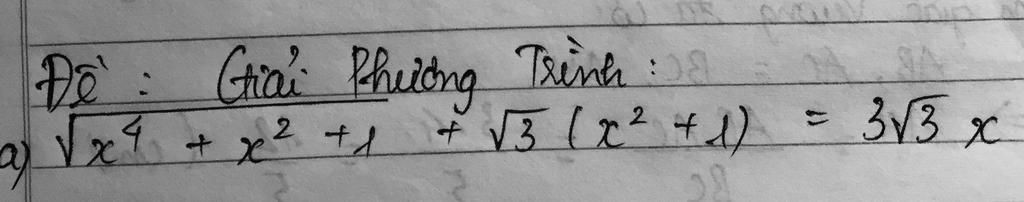 Đề : Giải Phương Trình :
a) √(x⁴ + x² + 1) + √3 (x² + 1) = 3√3 x